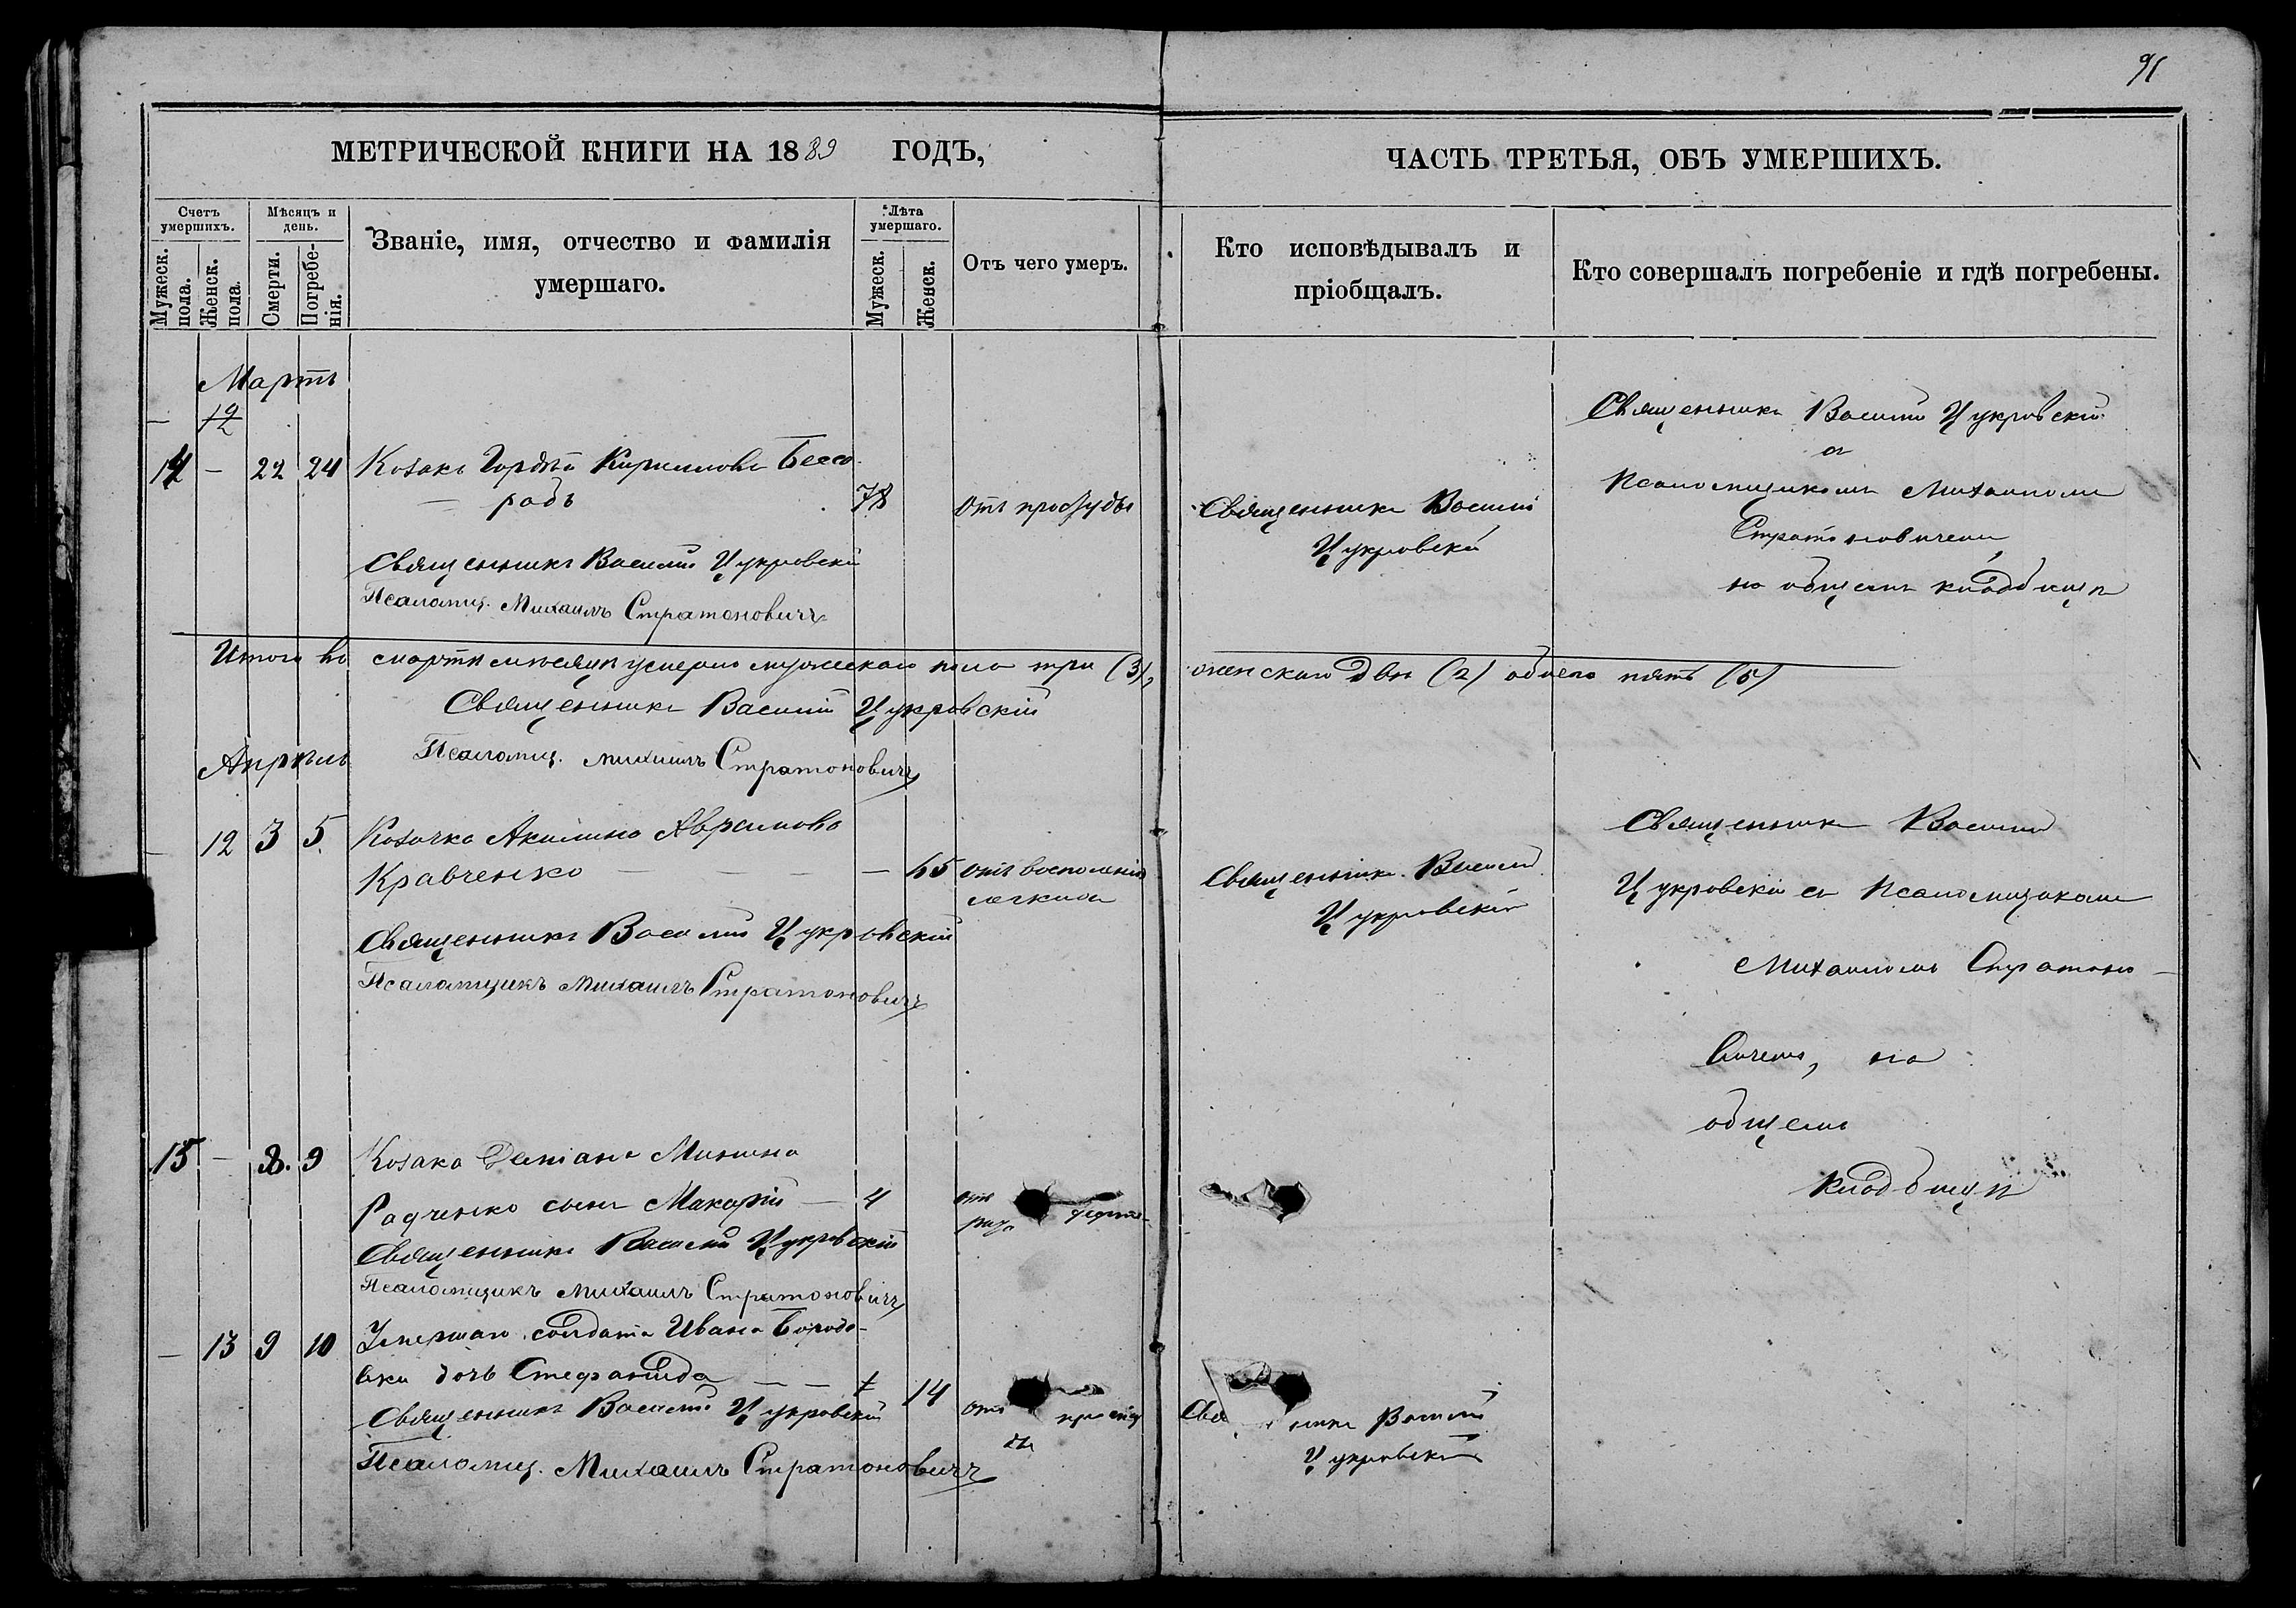 91
МЕТРИЧЕСКОЙ КНИГИ НА 1889 ГОДЪ,
ЧАСТЬ ТРЕТЬЯ, ОБЪ УМЕРШИХЪ.
Счетъ умершихъ.
Мужеск. пола.
Женск. пола.
Мѣсяцъ и день.
Смерти.
Погребенія.
Званіе, имя, отчество и фамилія
умершаго.
Лѣта умершаго.
Мужеск.
Женск.
Отъ чего умеръ.
Кто исповѣдывалъ и
пріобщалъ.
Кто совершалъ погребеніе и гдѣ погребены.
Мартъ
14 — 22 24 Козакъ Гордѣй Кирилловъ Бесса-
радъ 78 отъ простуды
Священникъ Василій
Цукровскій
Священникъ Василій Цукровскій
съ
Псаломщикомъ Михаиломъ
Стратоновичемъ
на общемъ кладбищѣ
Священникъ Василій Цукровскій
Псаломщ. Михаилъ Стратоновичъ
Итого въ мартѣ мѣсяцѣ умерло мужескаго пола три (3), женскаго двѣ (2) обоего пять (5)
Священникъ Василій Цукровскій
Псаломщ. Михаилъ Стратоновичъ
Апрѣль
— 12 3 5 Козачка Акилина Аврамова
Кравченко — 65 отъ воспаленія
легкихъ
Священникъ Василій
Цукровскій
Священникъ Василій
Цукровскій съ Псаломщикомъ
Михаиломъ Стратоно-
вичемъ, на
общемъ
кладбищѣ
Священникъ Василій Цукровскій
Псаломщикъ Михаилъ Стратоновичъ
15 — 8. 9 Козака Деміана Минина
Радченко сынъ Макарій — 4 отъ
Священникъ Василій Цукровскій
Псаломщикъ Михаилъ Стратоновичъ
— 13 9 10 Умершаго солдата Ивана Бородо-
вки дочь Стефанида — — 14 отъ
Священникъ Василій Цукровскій
Псаломщ. Михаилъ Стратоновичъ
Василій
Цукровскій